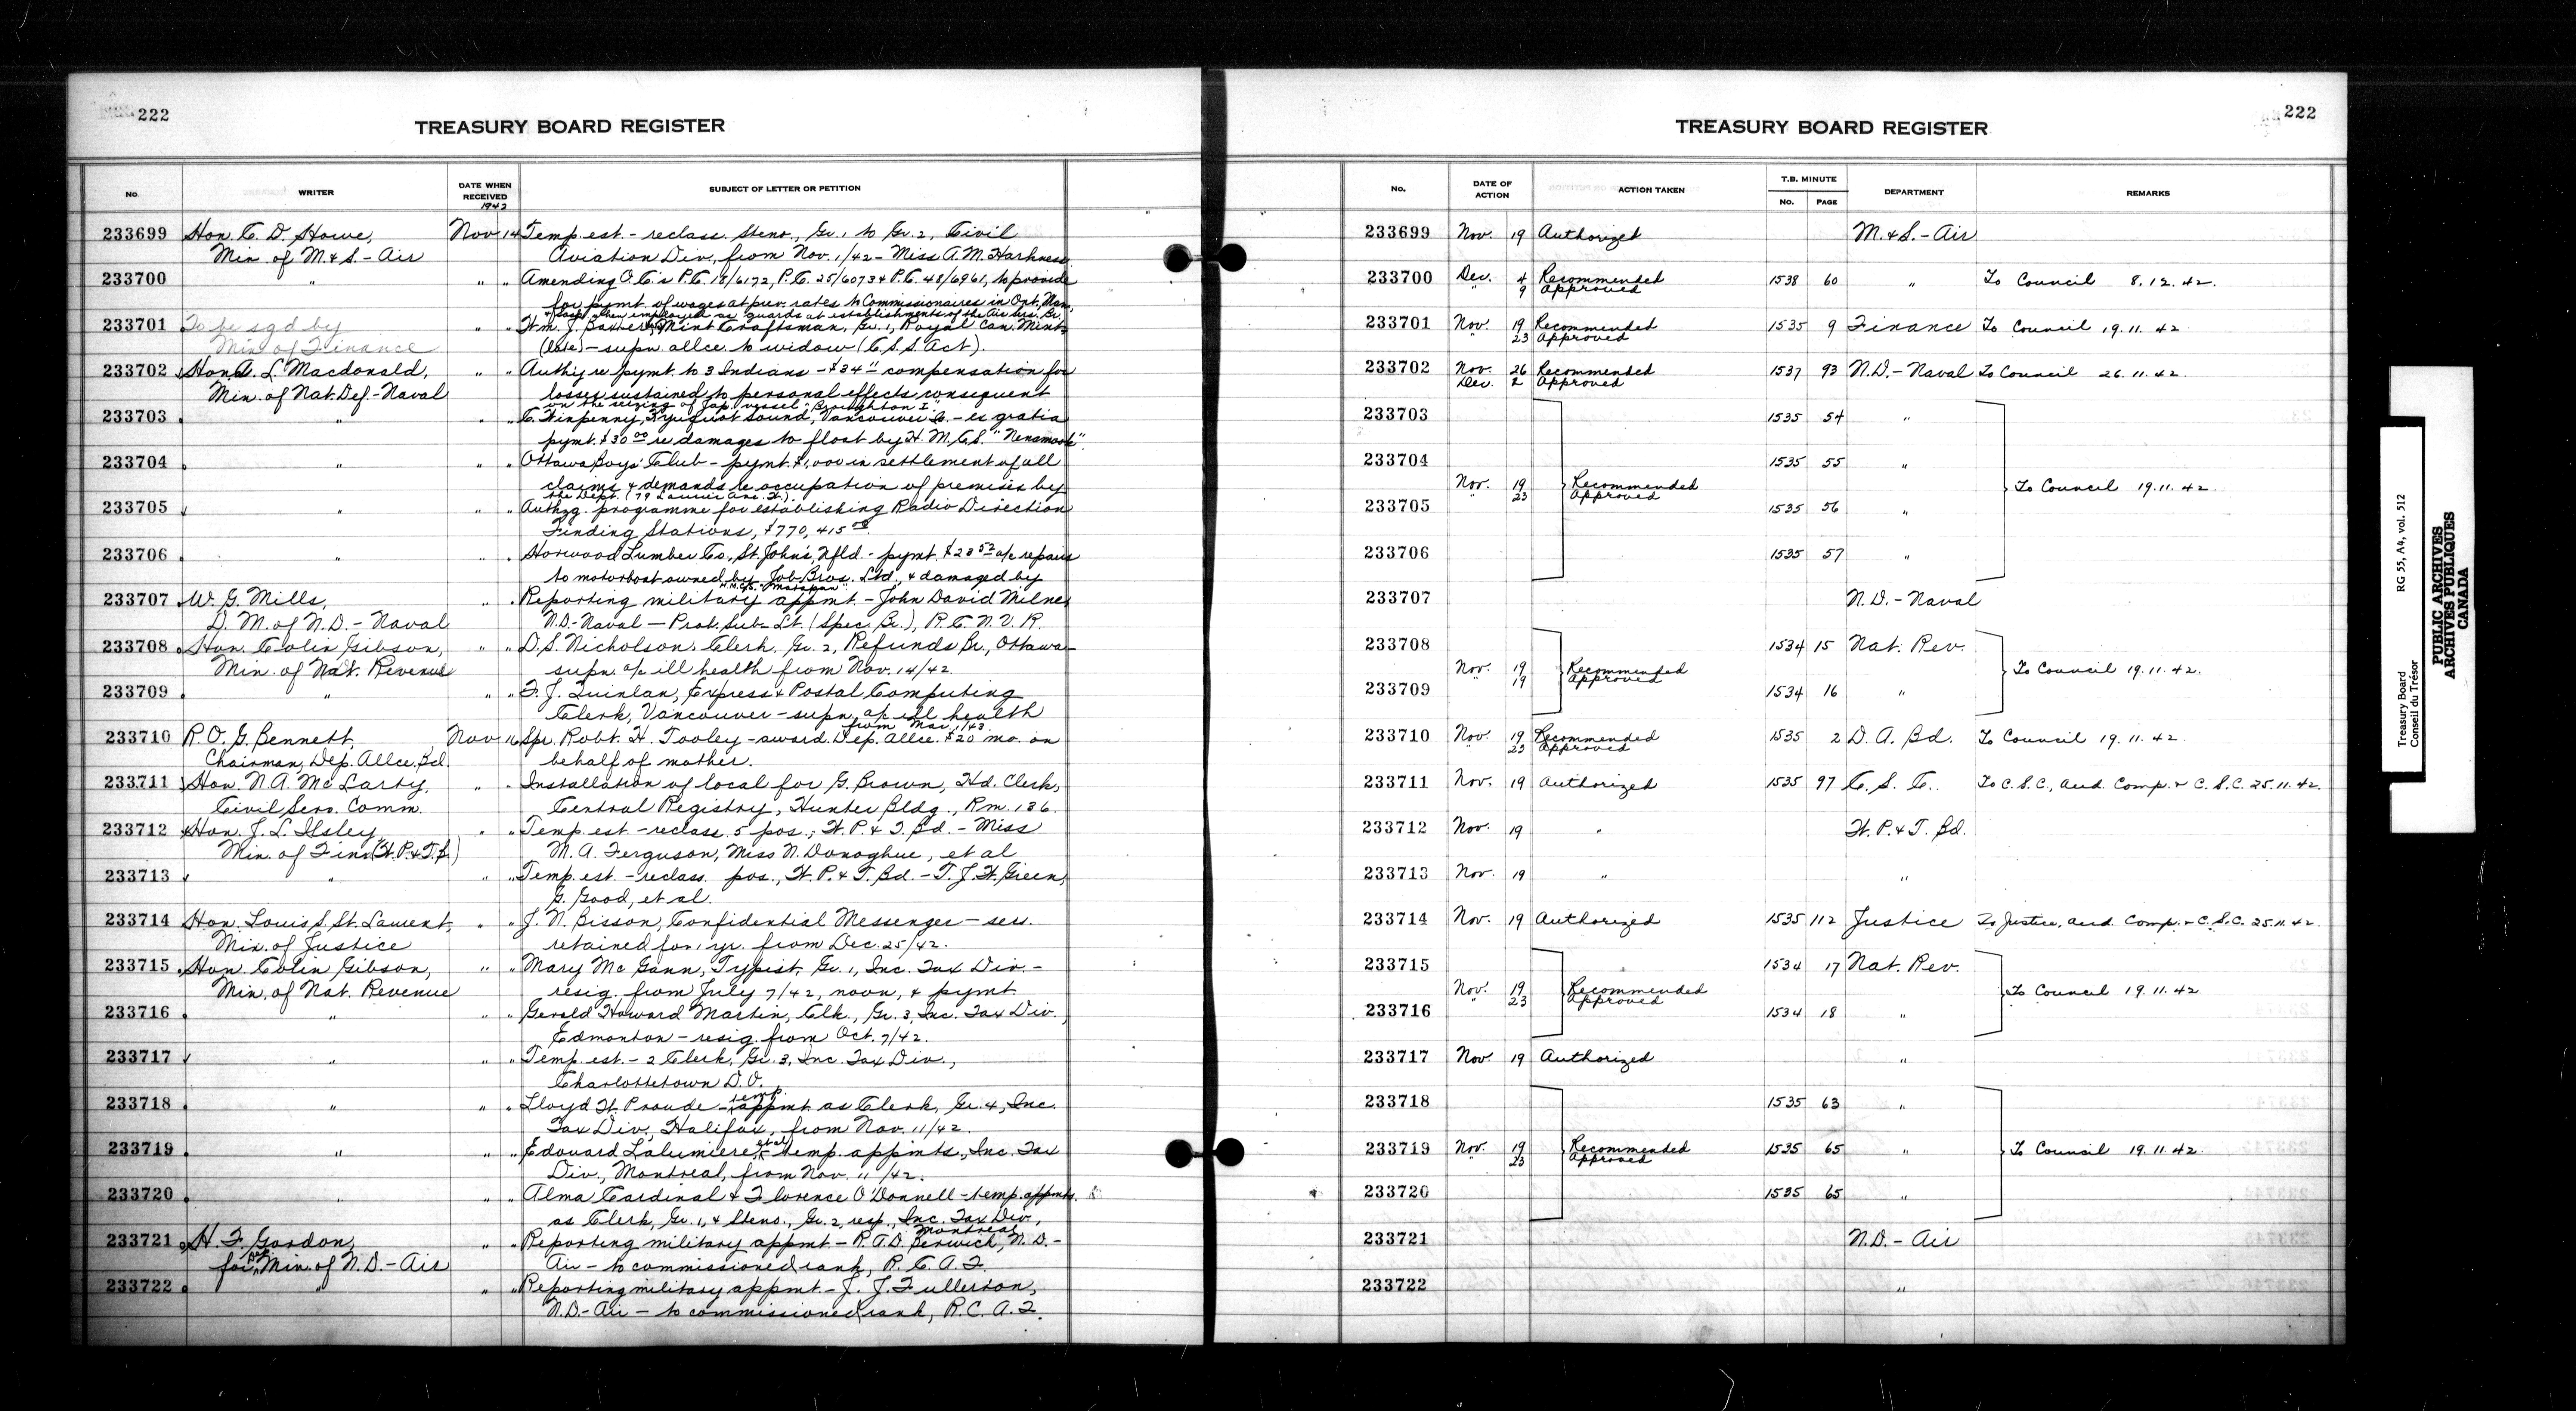 222
TREASURY BOARD REGISTER
No. WRITER DATE WHEN RECEIVED SUBJECT OF LETTER OR PETITION
1942
233699 Hon. C. D. Howe, Nov. 14 Temp. est. - reclass. Steno., Gr. 1 to Gr. 2, Civil
Min. of M. & S. - Air Aviation Div., from Nov. 1/42 - Miss A. M. Harkness
233700 " " " Amending O.C.'s P.C. 18/6172, P.C. 25/6073 & P.C. 48/6961, to provide
for pymt. of wages at prev. rates to Commissionaires in Ont., Man.,
when employed as guards at establishments of the Air Ser. Br.
233701 To be sgd by " " Wm. J. Baxter, Mint Craftsman, Gr. 1, Royal Can. Mint
Min of Finance (late) - supn. allce. to widow (C.S.S. Act).
233702 Hon. A. L. Macdonald, " " Authy re pymt. to 3 Indians - $34 compensation for
Min. of Nat. Def. - Naval losses sustained to personal effects consequent
on the seizing of Jap. vessel "Broughton I".
233703 " " " C. Winpenny, Kyuquot Sound, Vancouver Is. - ex gratia
pymt. $30.00 re damages to float by H.M.C.S.
233704 " " " Ottawa Boys' Club - pymt. $1,000 in settlement of all
claims & demands re occupation of premises by
the Dept. (79 Laurier Ave. W.).
233705 " " " Authzg. programme for establishing Radio Direction
Finding Stations, $770,415
233706 " " " Horwood Lumber Co., St. John's, Nfld. - pymt. $28.52 a/c repairs
to motorboat owned by Job Bros. Ltd., & damaged by
H.M.C.S.
233707 W. G. Mills, " " Reporting military appmt. - John David Milne,
D. M. of N.D. - Naval N.D. - Naval - Prob. Sub-Lt. (Spec. Br.), R.C.N.V.R.
233708 Hon. Colin Gibson, " " D. S. Nicholson, Clerk, Gr. 2, Refunds Br., Ottawa -
Min. of Nat. Revenue supn. a/c ill health from Nov. 14/42.
233709 " " " F. J. Quinlan, Express & Postal Computing
Clerk, Vancouver - supn. a/c ill health
from Mar. 1/43.
233710 R. O. G. Bennett, Nov. 16 Spr. Robt. H. Tooley - award Dep. Allce. $20 mo. on
Chairman, Dep. Allce. Bd. behalf of mother.
233711 Hon. N. A. McLarty, " " Installation of local for G. Brown, Hd. Clerk,
Civil Serv. Comm. Central Registry, Hunter Bldg., Rm. 136.
233712 Hon. J. L. Ilsley, " " Temp. est. - reclass. 5 pos., W.P. & T. Bd. - Miss
Min. of Fin. (W.P. & T.B.) M. A. Ferguson, Miss N. Donoghue, et al
233713 " " " Temp. est. - reclass. pos., W.P. & T. Bd. - T. J. W. Green,
G. Good, et al.
233714 Hon. Louis S. St. Laurent, " " J. N. Bisson, Confidential Messenger - serv.
Min. of Justice retained for 1 yr. from Dec. 25/42.
233715 Hon. Colin Gibson, " " Mary McGann, Typist, Gr. 1, Inc. Tax Div. -
Min. of Nat. Revenue resig. from July 7/42, noon, & pymt.
233716 " " " Gerald Howard Martin, Clk., Gr. 3, Inc. Tax Div.,
Edmonton - resig. from Oct. 7/42.
233717 " " " Temp. est. - 2 Clerk, Gr. 3, Inc. Tax Div.,
Charlottetown D.O.
233718 " " " Lloyd W. Proude - temp. appmt. as Clerk, Gr. 4, Inc.
Tax Div., Halifax, from Nov. 11/42.
233719 " " " Edouard Lalumiere et al - temp. appmts., Inc. Tax
Div., Montreal, from Nov. 11/42.
233720 " " " Alma Cardinal & Florence O'Donnell - temp. appmts.
as Clerk, Gr. 1, & Steno., Gr. 2, resp., Inc. Tax Div.,
Montreal
233721 H. F. Gordon, " " Reporting military appmt. - R. A. D. Berwick, N.D. -
for D. Min. of N.D. - Air Air - to commissioned rank, R.C.A.F.
233722 " " " Reporting military appmt. - J. J. Fullerton,
N.D. - Air - to commissioned rank, R.C.A.F.
222
TREASURY BOARD REGISTER
No. DATE OF ACTION ACTION TAKEN T.B. MINUTE No. PAGE DEPARTMENT REMARKS
233699 Nov. 19 Authorized M. & S. - Air
233700 Dec. 4 Recommended 1538 60 " To Council 8.12.42.
9 Approved
233701 Nov. 19 Recommended 1535 9 Finance To Council 19.11.42
23 Approved
233702 Nov. 26 Recommended 1537 93 N.D. - Naval To Council 26.11.42.
Dec. 2 Approved
233703 1535 54 "
233704 1535 55 "
Nov. 19 Recommended To Council 19.11.42.
" 23 Approved
233705 1535 56 "
233706 1535 57 "
233707 N.D. - Naval
233708 1534 15 Nat. Rev.
Nov. 19 Recommended To Council 19.11.42.
" 19 Approved
233709 1534 16 "
233710 Nov. 19 Recommended 1535 2 D. A. Bd. To Council 19.11.42
" 23 Approved
233711 Nov. 19 Authorized 1535 97 C. S. C. To C.S.C., Aud. Comp. & C.S.C. 25.11.42.
233712 Nov. 19 " W.P. & T. Bd.
233713 Nov. 19 " "
233714 Nov. 19 Authorized 1535 112 Justice To Justice, Aud. Comp. & C.S.C. 25.11.42.
233715 1534 17 Nat. Rev.
Nov. 19 Recommended To Council 19.11.42
" 23 Approved
233716 1534 18 "
233717 Nov. 19 Authorized "
233718 1535 63 "
233719 Nov. 19 Recommended 1535 65 " To Council 19.11.42.
23 Approved
233720 1535 65 "
233721 N.D. - Air
233722 "
Treasury Board
Conseil du Trésor
RG 55, A4, vol. 512
PUBLIC ARCHIVES
ARCHIVES PUBLIQUES
CANADA